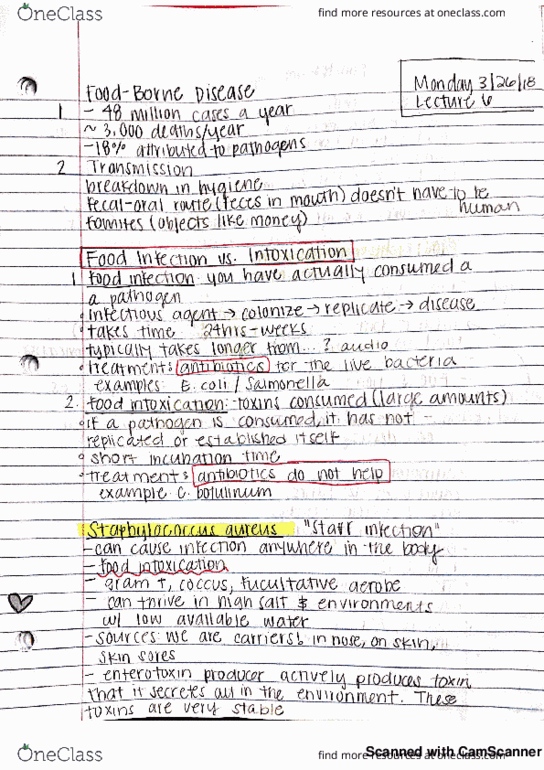 OneClass
find more resources at oneclass.com
Monday 3/26/18
Lecture 6
Food-Borne Disease
1 - 48 million cases a year
~ 3,000 deaths/year
-18% attributed to pathogens
2 Transmission
breakdown in hygiene
fecal-oral route (feces in mouth) doesn't have to be
human
fomites (objects like money)
Food Infection vs. Intoxication
1 food infection: you have actually consumed a
a pathogen
• infectious agent → colonize → replicate → disease
• takes time 24hrs-weeks
typically takes longer from...? audio
• treatment: antibiotics for the live bacteria
examples: E. coli / Salmonella
2. food intoxication: -toxins consumed (large amounts)
• if a pathogen is consumed, it has not
replicated or established itself
• short incubation time
• treatment: antibiotics do not help
example: C. botulinum
Staphylococcus aureus "Staff infection"
-can cause infection anywhere in the body
- food intoxication
- gram +, coccus, fucultative aerobe
- can thrive in high salt & environments
w/ low available water
- sources: we are carriers! in nose, on skin,
skin sores
- enterotoxin producer actively produces toxin
that it secretes out in the environment. These
toxins are very stable
OneClass
find more resources at oneclass.com
Scanned with CamScanner